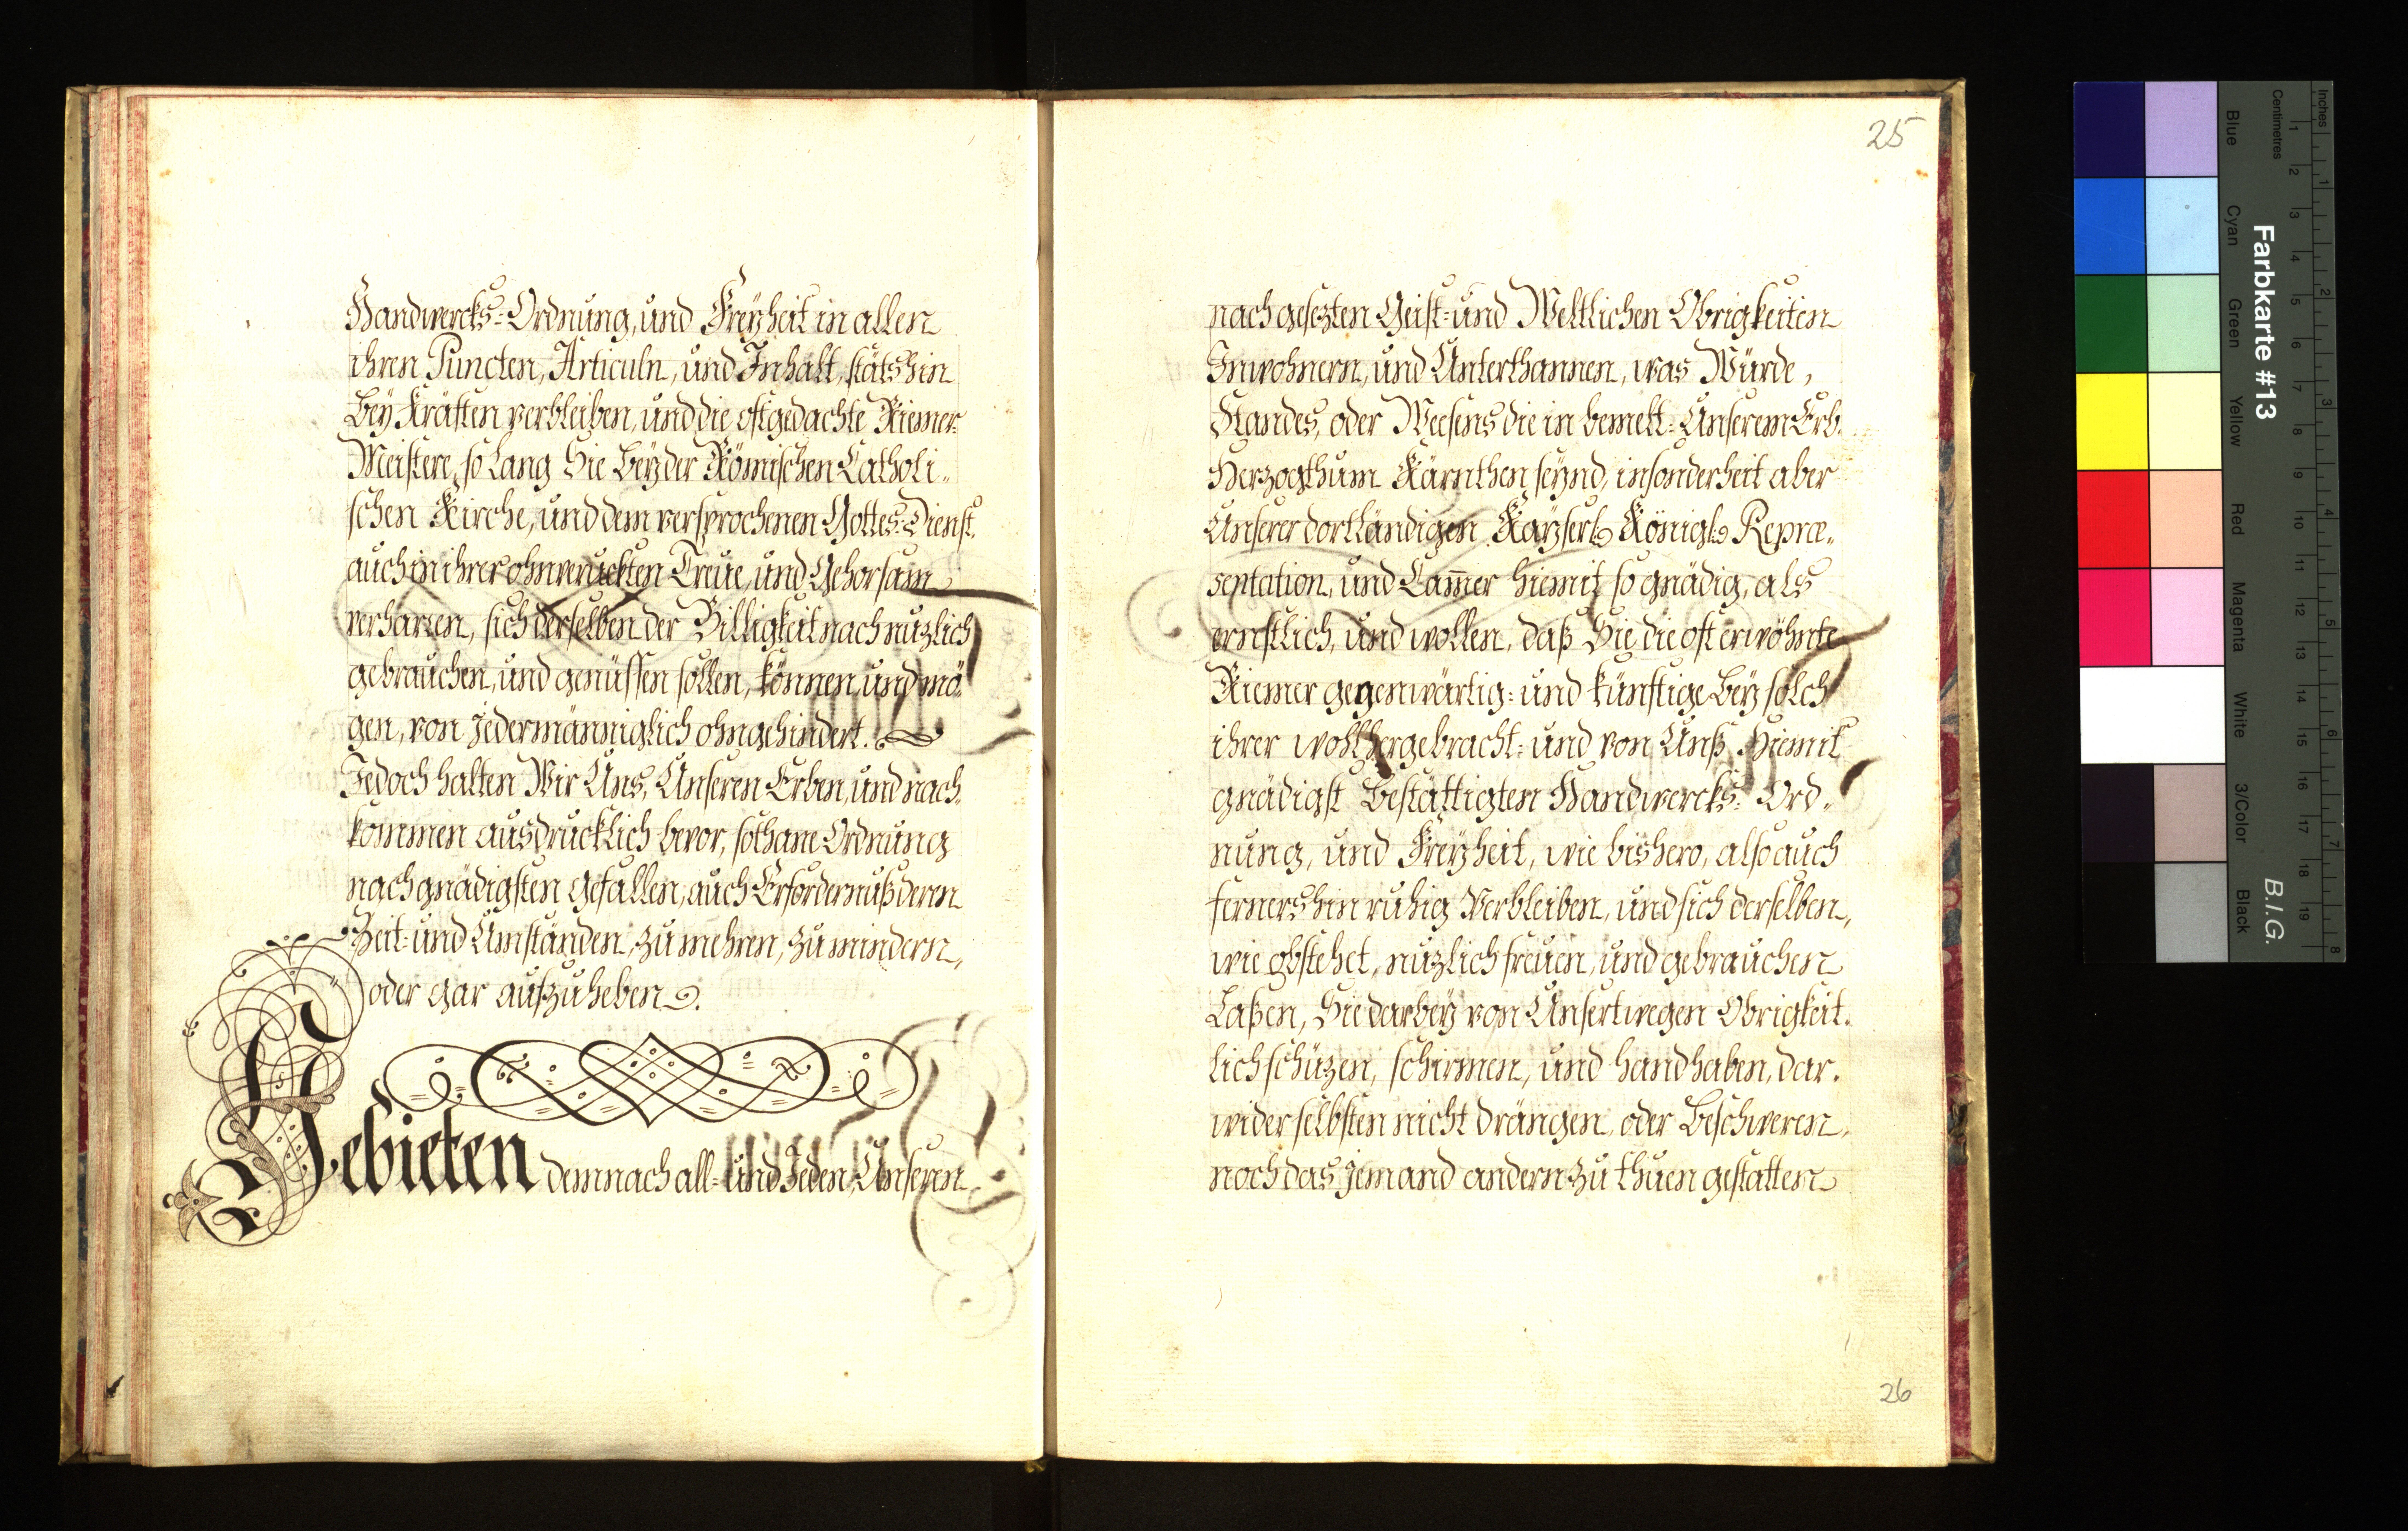 Handwercks-Ordnung, und Freyheit in allen
ihren Puncten, Articuln, und Inhalt, stäts hin
bey Kräften verbleiben, und die oftgedachte Riemer-
Meistere, so lang Sie bey der Römischen Catholi-
schen Kirche, und dem versprochenen Gottes-Dienst,
auch in ihrer ohnveruckten Treüe, und Gehorsam
verharren, sich derselben der Billigkeit nach nuzlich
gebrauchen, und genüssen sollen, können, und mö-
gen, von jedermänniglich ohngehindert.
Jedoch halten Wir Uns, Unseren Erben, und nach-
kommen ausdrucklich bevor, sothane Ordnung
nach gnädigsten gefallen, auch Erfordernuß deren
Zeit- und Umständen, zu mehren, zu mindern,
oder gar aufzuheben.
Gebieten demnach all- und Jeden Unseren
25
nach gesezten Geist- und Weltlichen Obrigkeiten
Inwohnern, und Unterthannen, was Würde,
Standes, oder Weesens die in bemelt-Unserem Erb-
Herzogthum Kärnthen seynd, insonderheit aber
Unserer dortländigen Kayserl. Königl. Repræ-
sentation, und Cam̄er hiemit so gnädig, als
ernstlich, und wollen, daß Sie die oft erwöhnte
Riemer gegenwärtig- und künftige bey solch
ihrer wohlhergebracht- und von Unß hiemit
gnädigst bestättigten Handwercks-Ord-
nung, und Freyheit, wie bishero, also auch
fernershin ruhig verbleiben, und sich derselben,
wie obstehet, nuzlich freüen, und gebrauchen
Laßen, Sie darbey von Unsertwegen Obrigkeit-
lich schüzen, schirmen, und handhaben, dar-
wider selbsten nicht drängen, oder beschweren,
noch das jemand andern zu thuen gestatten
26
Inches
Centimetres
Farbkarte #13
B.I.G.
Blue
Cyan
Green
Yellow
Red
Magenta
White
3/Color
Black
1 2 3 4 5 6 7 8 9 10 11 12 13 14 15 16 17 18 19
1 2 3 4 5 6 7 8